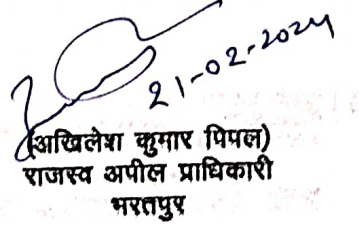 21-02-2024
(अखिलेश कुमार पिपल)
राजस्व अपील प्राधिकारी
भरतपुर